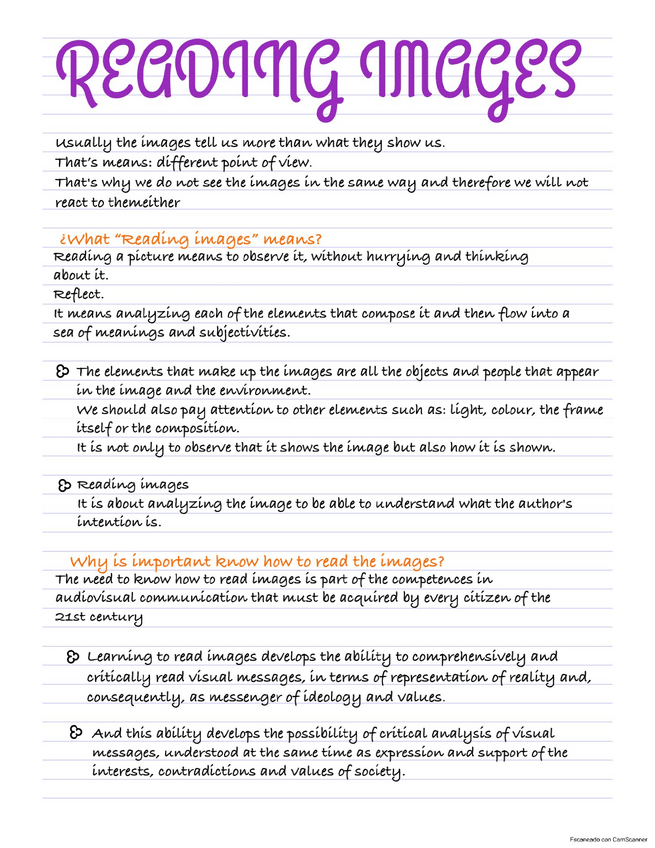 READING IMAGES
Usually the images tell us more than what they show us.
That's means: different point of view.
That's why we do not see the images in the same way and therefore we will not
react to themeither
¿What "Reading images" means?
Reading a picture means to observe it, without hurrying and thinking
about it.
Reflect.
It means analyzing each of the elements that compose it and then flow into a
sea of meanings and subjectivities.
The elements that make up the images are all the objects and people that appear
in the image and the environment.
We should also pay attention to other elements such as: light, colour, the frame
itself or the composition.
It is not only to observe that it shows the image but also how it is shown.
Reading images
It is about analyzing the image to be able to understand what the author's
intention is.
Why is important know how to read the images?
The need to know how to read images is part of the competences in
audiovisual communication that must be acquired by every citizen of the
21st century
Learning to read images develops the ability to comprehensively and
critically read visual messages, in terms of representation of reality and,
consequently, as messenger of ideology and values.
And this ability develops the possibility of critical analysis of visual
messages, understood at the same time as expression and support of the
interests, contradictions and values of society.
Escaneado con CamScanner